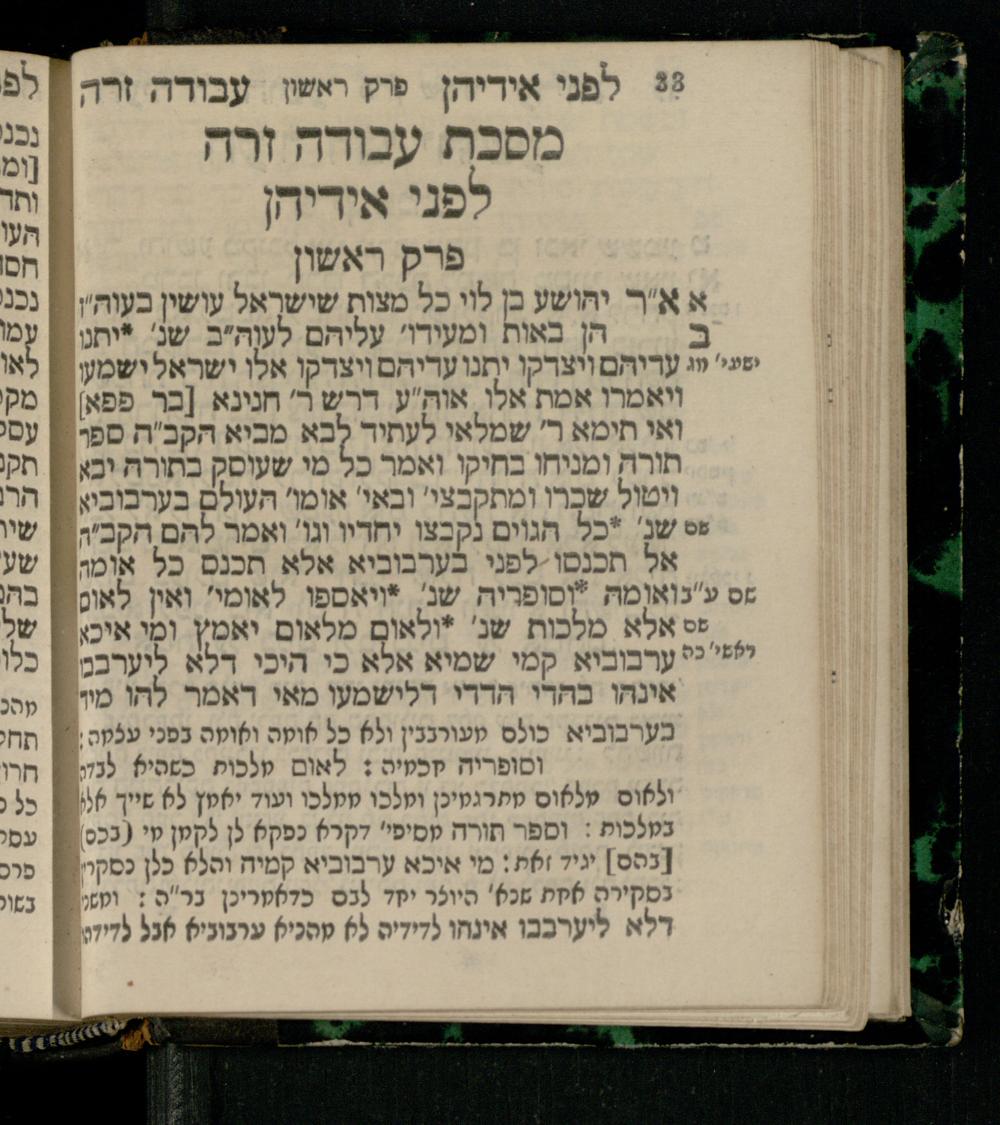 33 לפני אידיהן פרק ראשון עבודה זרה
מסכת עבודה זרה
לפני אידיהן
פרק ראשון
א א״ר יהושע בן לוי כל מצות שישראל עושין בעוה״ז
ב הן באות ומעידו׳ עליהם לעוה״ב שנ׳ *יתנו
ישעי׳ מג עדיהם ויצדקו יתנו עדיהם ויצדקו אלו ישראל ישמעו
ויאמרו אמת אלו אוה״ע דרש ר׳ חנינא [בר פפא]
ואי תימא ר׳ שמלאי לעתיד לבא מביא הקב״ה ספר
תורה ומניחו בחיקו ואמר כל מי שעוסק בתורה יבא
ויטול שכרו ומתקבצי׳ ובאי׳ אומו׳ העולם בערבוביא
שם שנ׳ *כל הגוים נקבצו יחדיו וגו׳ ואמר להם הקב״ה
אל תכנסו לפני בערבוביא אלא תכנס כל אומה
שם ע״ב ואומה *וסופריה שנ׳ *ויאספו לאומי׳ ואין לאום
שם אלא מלכות שנ׳ *ולאום מלאום יאמץ ומי איכא
ראשי׳ כה ערבוביא קמי שמיא אלא כי היכי דלא ליערבבו
אינהו בהדי הדדי דלישמעו מאי דאמר להו מיד
בערבוביא כולם מעורבבין ולא כל אומה ואומה בפני עצמה :
וסופריה חכמיה : לאום מלכות כשהיא לבדה
ולאום מלאום מתרגמינן ומלכו ממלכו ועוד יאמץ לא שייך אלא
במלכות : וספר תורה מסיפי׳ דקרא נפקא לן לקמן מי (בכם)
[בהם] יגיד זאת : מי איכא ערבוביא קמיה והלא כלן נסקרין
בסקירה אחת שנא׳ היוצר יחד לבם כדאמרינן בר״ה : ומשני
דלא ליערבבו אינהו לדידיה לא מהניא ערבוביא אבל לדידהו